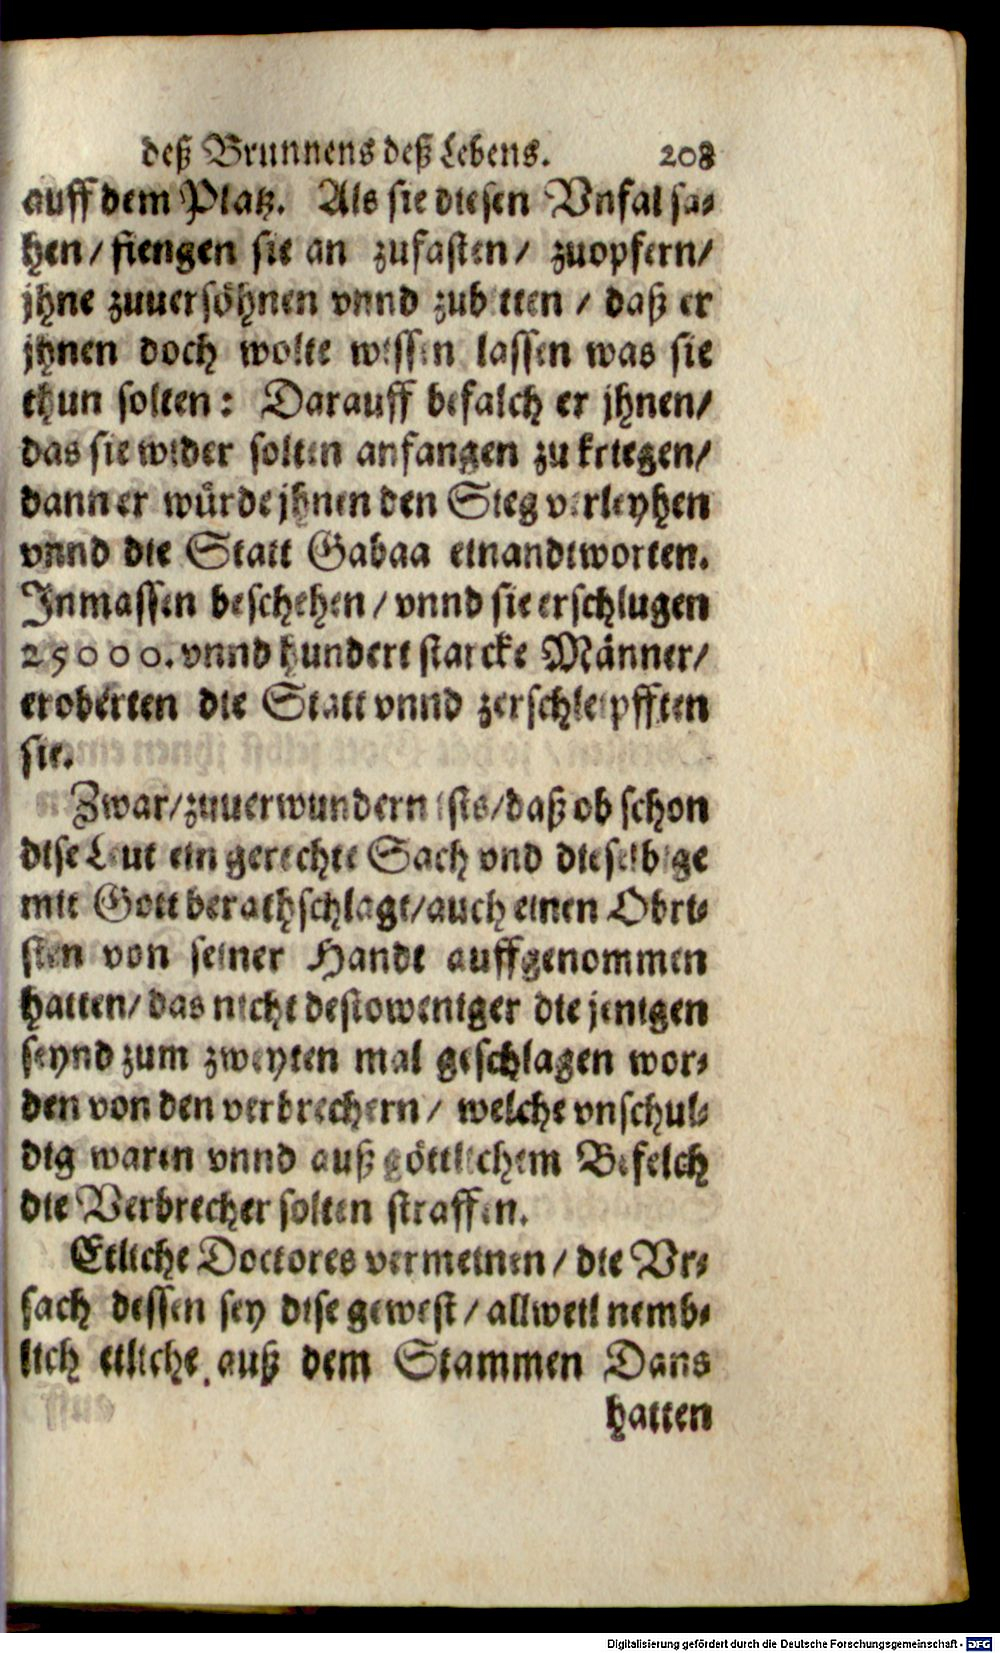 deß Brunnens deß Lebens. 208
auff dem Platz. Als sie diesen Vnfal sa-
hen / fiengen sie an zufasten / zuopfern /
jhne zuuersöhnen vnnd zubetten / daß er
jhnen doch wolte wissen lassen was sie
thun solten: Darauff befalch er jhnen /
das sie wider solten anfangen zu kriegen /
dann er würde jhnen den Sieg verleyhen
vnnd die Statt Gabaa einandtworten.
Inmassen beschehen / vnnd sie erschlugen
25000. vnnd hundert starcke Männer /
eroberten die Statt vnnd zerschleipfften
sie.
Zwar / zuuerwundern ists / daß ob schon
dise Leut ein gerechte Sach vnd dieselbige
mit Gott berathschlagt / auch einen Obri-
sten von seiner Handt auffgenommen
hatten / das nicht destoweniger die jenigen
seynd zum zweyten mal geschlagen wor-
den von den verbrechern / welche vnschul-
dig waren vnnd auß göttlichem Befelch
die Verbrecher solten straffen.
Etliche Doctores vermeinen / die Vr-
sach dessen sey dise gewest / allweil nemb-
lich etliche auß dem Stammen Dans
hatten
Digitalisierung gefördert durch die Deutsche Forschungsgemeinschaft - DFG